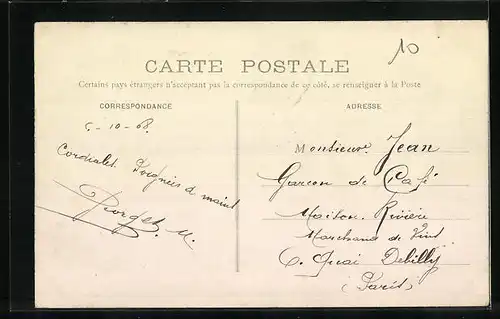 10
CARTE POSTALE
Certains pays étrangers n'acceptant pas la correspondance de ce côté, se renseigner à la Poste
CORRESPONDANCE
ADRESSE
5-10-08.
Cordiales Poignées de mains
Georges M.
Monsieur Jean
Garçon de Café
Maison Rivière
Marchand de Vins
6. Quai Debilly
(Paris)